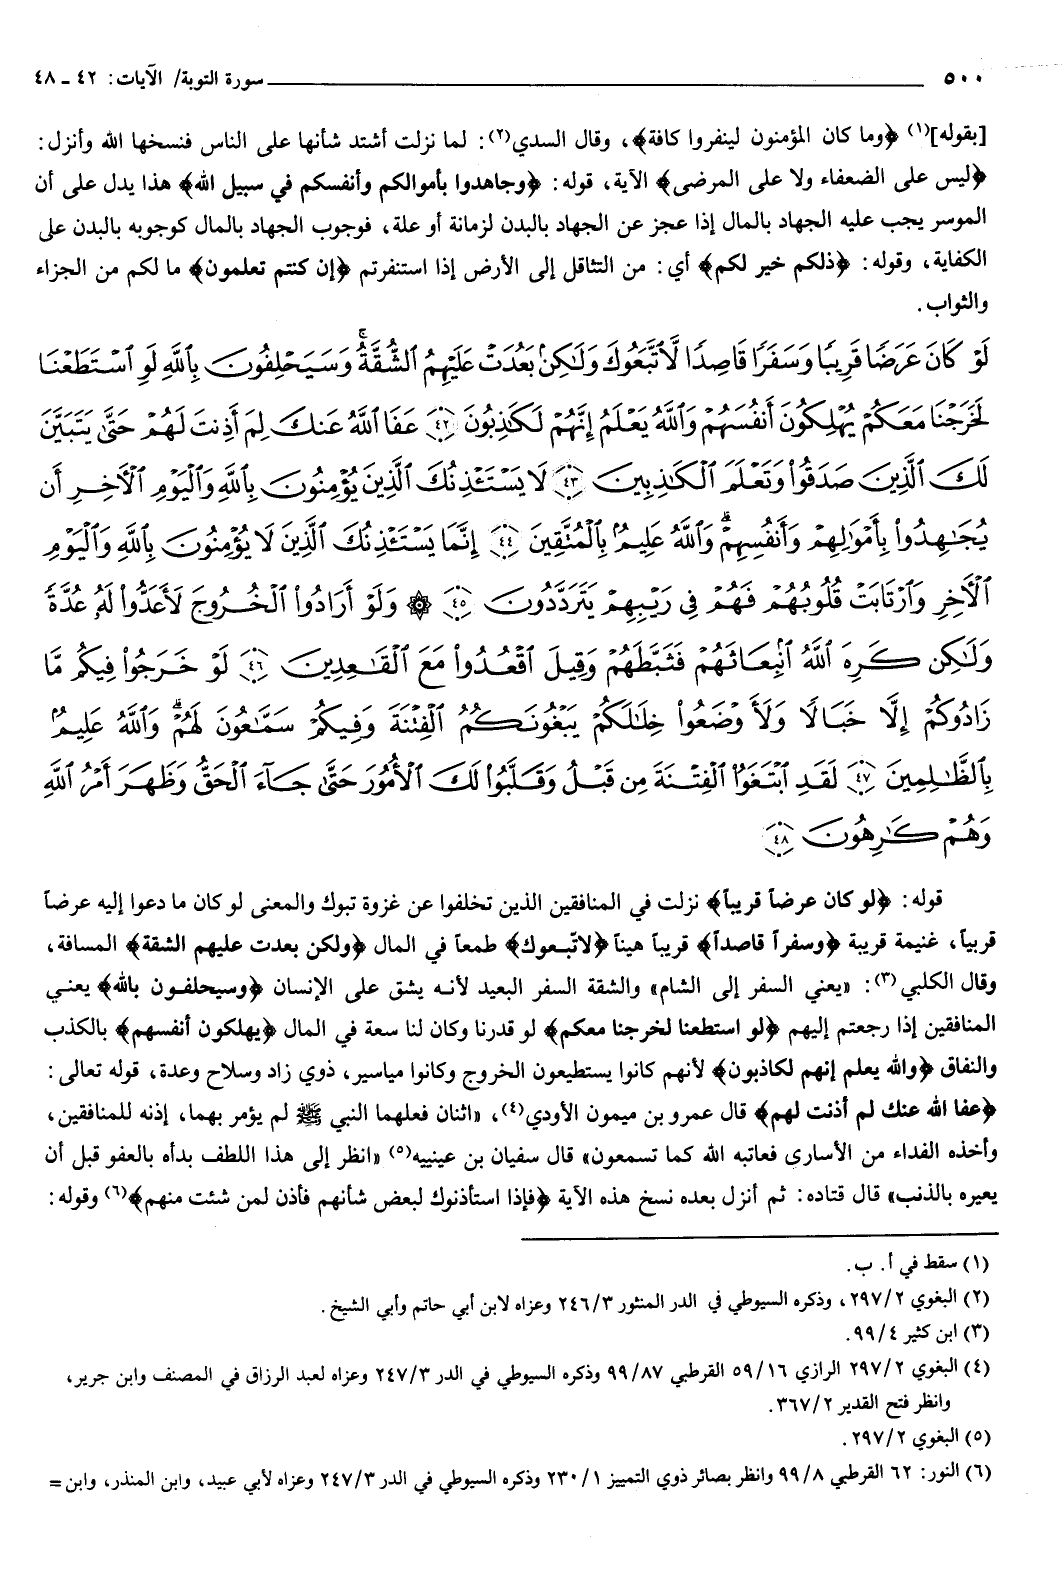 ٥٠٠ سورة التوبة/ الآيات: ٤٢ ـ ٤٨
[بقوله](١) ﴿وما كان المؤمنون لينفروا كافة﴾، وقال السدي(٢): لما نزلت أشتد شأنها على الناس فنسخها الله وأنزل:
﴿ليس على الضعفاء ولا على المرضى﴾ الآية، قوله: ﴿وجاهدوا بأموالكم وأنفسكم في سبيل الله﴾ هذا يدل على أن
الموسر يجب عليه الجهاد بالمال إذا عجز عن الجهاد بالبدن لزمانة أو علة، فوجوب الجهاد بالمال كوجوبه بالبدن على
الكفاية، وقوله: ﴿ذلكم خير لكم﴾ أي: من التثاقل إلى الأرض إذا استنفرتم ﴿إن كنتم تعلمون﴾ ما لكم من الجزاء
والثواب.
لَوْ كَانَ عَرَضًا قَرِيبًا وَسَفَرًا قَاصِدًا لَّاتَّبَعُوكَ وَلَٰكِنۢ بَعُدَتْ عَلَيْهِمُ ٱلشُّقَّةُ ۚ وَسَيَحْلِفُونَ بِٱللَّهِ لَوِ ٱسْتَطَعْنَا
لَخَرَجْنَا مَعَكُمْ يُهْلِكُونَ أَنفُسَهُمْ وَٱللَّهُ يَعْلَمُ إِنَّهُمْ لَكَٰذِبُونَ ٤٢ عَفَا ٱللَّهُ عَنكَ لِمَ أَذِنتَ لَهُمْ حَتَّىٰ يَتَبَيَّنَ
لَكَ ٱلَّذِينَ صَدَقُوا۟ وَتَعْلَمَ ٱلْكَٰذِبِينَ ٤٣ لَا يَسْتَـْٔذِنُكَ ٱلَّذِينَ يُؤْمِنُونَ بِٱللَّهِ وَٱلْيَوْمِ ٱلْـَٔاخِرِ أَن
يُجَٰهِدُوا۟ بِأَمْوَٰلِهِمْ وَأَنفُسِهِمْ ۗ وَٱللَّهُ عَلِيمٌۢ بِٱلْمُتَّقِينَ ٤٤ إِنَّمَا يَسْتَـْٔذِنُكَ ٱلَّذِينَ لَا يُؤْمِنُونَ بِٱللَّهِ وَٱلْيَوْمِ
ٱلْـَٔاخِرِ وَٱرْتَابَتْ قُلُوبُهُمْ فَهُمْ فِى رَيْبِهِمْ يَتَرَدَّدُونَ ٤٥ ۞ وَلَوْ أَرَادُوا۟ ٱلْخُرُوجَ لَأَعَدُّوا۟ لَهُۥ عُدَّةً
وَلَٰكِن كَرِهَ ٱللَّهُ ٱنۢبِعَاثَهُمْ فَثَبَّطَهُمْ وَقِيلَ ٱقْعُدُوا۟ مَعَ ٱلْقَٰعِدِينَ ٤٦ لَوْ خَرَجُوا۟ فِيكُم مَّا
زَادُوكُمْ إِلَّا خَبَالًا وَلَأَوْضَعُوا۟ خِلَٰلَكُمْ يَبْغُونَكُمُ ٱلْفِتْنَةَ وَفِيكُمْ سَمَّٰعُونَ لَهُمْ ۗ وَٱللَّهُ عَلِيمٌۢ
بِٱلظَّٰلِمِينَ ٤٧ لَقَدِ ٱبْتَغَوُا۟ ٱلْفِتْنَةَ مِن قَبْلُ وَقَلَّبُوا۟ لَكَ ٱلْأُمُورَ حَتَّىٰ جَآءَ ٱلْحَقُّ وَظَهَرَ أَمْرُ ٱللَّهِ
وَهُمْ كَٰرِهُونَ ٤٨
قوله: ﴿لو كان عرضاً قريباً﴾ نزلت في المنافقين الذين تخلفوا عن غزوة تبوك والمعنى لو كان ما دعوا إليه عرضاً
قريباً، غنيمة قريبة ﴿وسفراً قاصداً﴾ قريباً هيناً ﴿لاتّبعوك﴾ طمعاً في المال ﴿ولكن بعدت عليهم الشقة﴾ المسافة،
وقال الكلبي(٣): «يعني السفر إلى الشام» والشقة السفر البعيد لأنه يشق على الإنسان ﴿وسيحلفون بالله﴾ يعني
المنافقين إذا رجعتم إليهم ﴿لو استطعنا لخرجنا معكم﴾ لو قدرنا وكان لنا سعة في المال ﴿يهلكون أنفسهم﴾ بالكذب
والنفاق ﴿والله يعلم إنهم لكاذبون﴾ لأنهم كانوا يستطيعون الخروج وكانوا مياسير، ذوي زاد وسلاح وعدة، قوله تعالى:
﴿عفا الله عنك لم أذنت لهم﴾ قال عمرو بن ميمون الأودي(٤)، «اثنان فعلهما النبي ﷺ لم يؤمر بهما، إذنه للمنافقين،
وأخذه الفداء من الأسارى فعاتبه الله كما تسمعون» قال سفيان بن عيينيه(٥) «انظر إلى هذا اللطف بدأه بالعفو قبل أن
يعيره بالذنب» قال قتاده: ثم أنزل بعده نسخ هذه الآية ﴿فإذا استأذنوك لبعض شأنهم فأذن لمن شئت منهم﴾(٦) وقوله:
(١) سقط في أ. ب.
(٢) البغوي ٢/ ٢٩٧، وذكره السيوطي في الدر المنثور ٣/ ٢٤٦ وعزاه لابن أبي حاتم وأبي الشيخ.
(٣) ابن كثير ٤/ ٩٩.
(٤) البغوي ٢/ ٢٩٧ الرازي ١٦/ ٥٩ القرطبي ٨٧/ ٩٩ وذكره السيوطي في الدر ٣/ ٢٤٧ وعزاه لعبد الرزاق في المصنف وابن جرير،
وانظر فتح القدير ٢/ ٣٦٧.
(٥) البغوي ٢/ ٢٩٧.
(٦) النور: ٦٢ القرطبي ٨/ ٩٩ وانظر بصائر ذوي التمييز ١/ ٢٣٠ وذكره السيوطي في الدر ٣/ ٢٤٧ وعزاه لأبي عبيد، وابن المنذر، وابن =